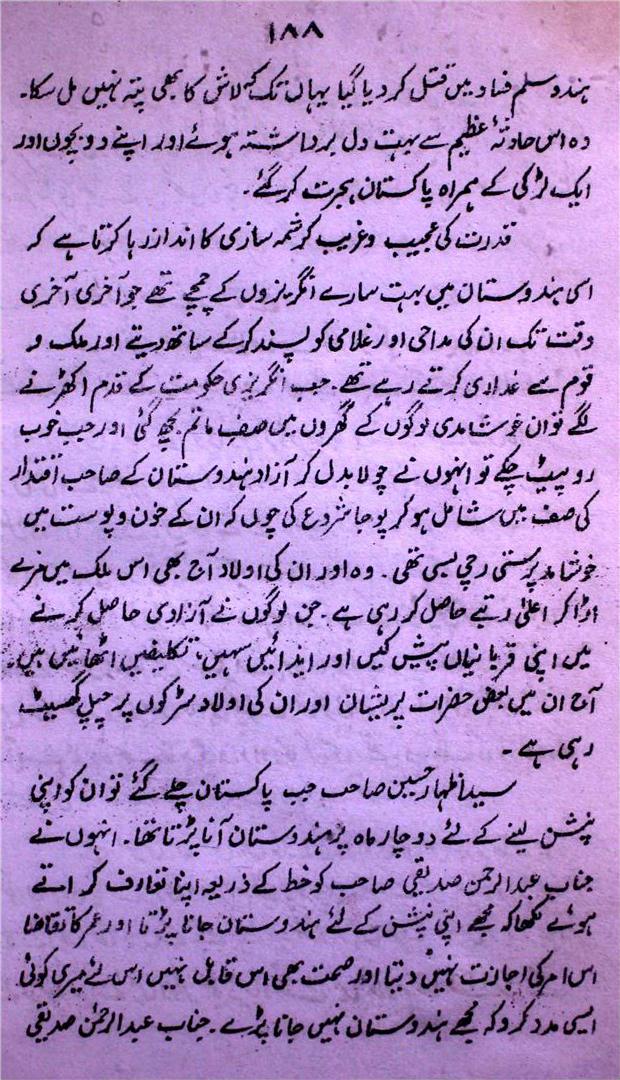 ۱۸۸
ہندو مسلم فساد میں قتل کر دیا گیا یہاں تک کہ لاش کا بھی پتہ نہیں مل سکا۔
وہ اس حادثۂ عظیم سے بہت دل برداشتہ ہوئے اور اپنے دو بچوں اور
ایک لڑکی کے ہمراہ پاکستان ہجرت کر گئے۔
قدرت کی عجیب و غریب کرشمہ سازی کا انداز رہا کرتا ہے کہ
اسی ہندوستان میں بہت سارے انگریزوں کے چمچے تھے جو آخری آخری
وقت تک ان کی مداحی اور غلامی کو پسند کر کے ساتھ دیتے اور ملک و
قوم سے غداری کرتے رہے تھے۔ جب انگریزی حکومت کے قدم اکھڑنے
لگے تو ان خوشامدی لوگوں کے گھروں میں صف ماتم بچھ گئی اور جب خوب
رو پیٹ چکے تو انہوں نے چولا بدل کر آزاد ہندوستان کے صاحب اقتدار
کی صف میں شامل ہو کر پوجا شروع کی چوں کہ ان کے خون و پوست میں
خوشامد پرستی رچی بسی تھی۔ وہ اور ان کی اولاد آج بھی اس ملک میں مزے
اڑا کر اعلیٰ رتبے حاصل کر رہی ہے۔ جن لوگوں نے آزادی حاصل کرنے
میں اپنی قربانیاں پیش کیں اور ایذائیں سہیں، تکلیفیں اٹھائیں ہیں۔
آج ان میں بعض حضرات پریشان اور ان کی اولاد سڑکوں پر چپل گھسیٹ
رہی ہے۔
سید اظہار حسین صاحب جب پاکستان چلے گئے تو ان کو اپنی
پنشن لینے کے لئے دو چار ماہ پر ہندوستان آنا پڑتا تھا۔ انہوں نے
جناب عبدالرحمن صدیقی صاحب کو خط کے ذریعہ اپنا تعارف کراتے
ہوئے لکھا کہ مجھے اپنی پنشن کے لئے ہندوستان جانا پڑتا اور عمر کا تقاضا
اس امر کی اجازت نہیں دیتا اور صحت بھی اس قابل نہیں اس لئے میری کوئی
ایسی مدد کرو کہ مجھے ہندوستان نہیں جانا پڑے۔ جناب عبدالرحمٰن صدیقی